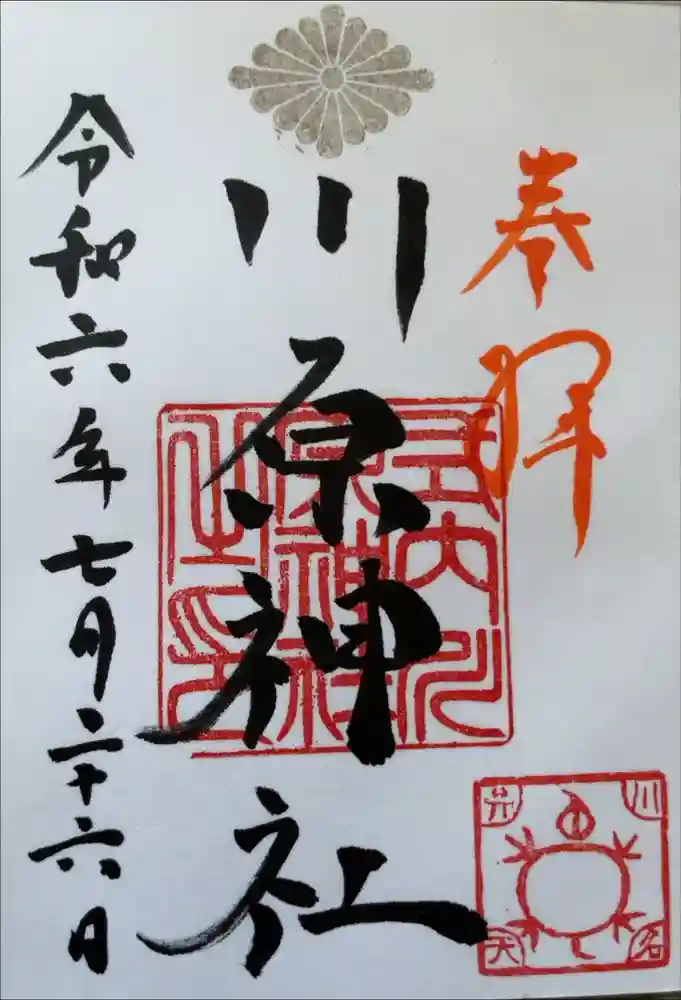 奉拝
式内川
原神社
之印
川原神社
川名
弁天
令和六年七月二十六日